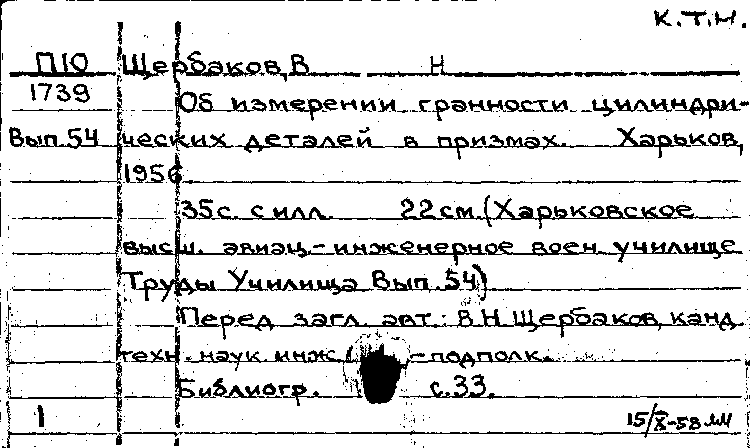 К.Т.И.
П10 Щербаков, В Н
1739 Об измерении гранности цилиндри-
Вып. 54 ческих деталей в призмах. Харьков,
1956.
35с. с илл. 22см. (Харьковское
высш. авиац.-инженерное воен. училище
Труды Училища Вып. 54)
Перед загл. авт.: В.Н. Щербаков, канд.
техн. наук инж. -подполк.
Библиогр. с. 33.
1 15/X-58